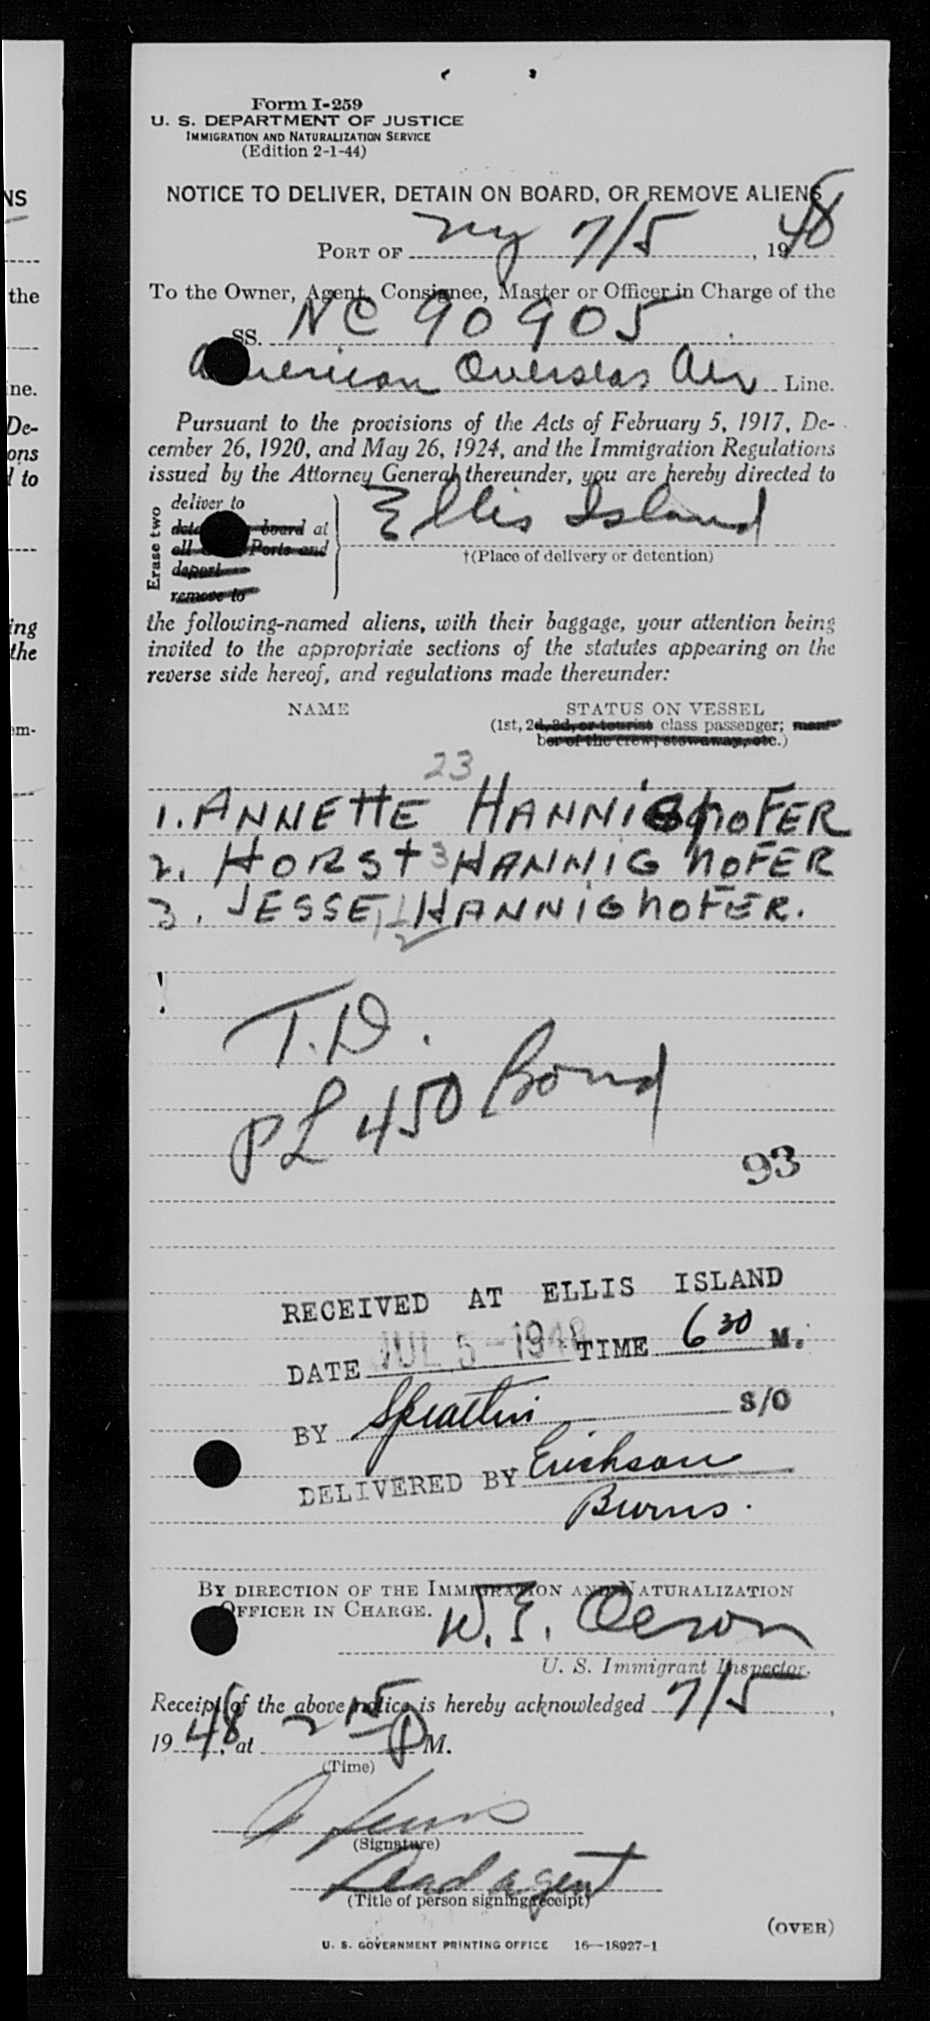 NS
the
ne.
De-
ons
l to
ing
the
em-
Form I-259
U. S. DEPARTMENT OF JUSTICE
IMMIGRATION AND NATURALIZATION SERVICE
(Edition 2-1-44)
NOTICE TO DELIVER, DETAIN ON BOARD, OR REMOVE ALIENS
PORT OF ny 7/5, 1948
To the Owner, Agent, Consignee, Master or Officer in Charge of the
SS. NC 90905
American Overseas Air Line.
Pursuant to the provisions of the Acts of February 5, 1917, De-
cember 26, 1920, and May 26, 1924, and the Immigration Regulations
issued by the Attorney General thereunder, you are hereby directed to
Erase two
deliver to
board at
all Ports and
deport
remove to
Ellis Island
†(Place of delivery or detention)
the following-named aliens, with their baggage, your attention being
invited to the appropriate sections of the statutes appearing on the
reverse side hereof, and regulations made thereunder:
NAME STATUS ON VESSEL
(1st, 2d, 3d, or tourist class passenger; mem-
ber of the crew; stowaway, etc.)
23
1. ANNETTE HANNIGHOFER
2. HORST 3 HANNIGHOFER
3. JESSE HANNIGHOFER.
T.D.
PL 450 Bond
93
RECEIVED AT ELLIS ISLAND
DATE JUL 5-1948 TIME 6 30 M.
BY S/O
DELIVERED BY Erickson
Burns.
BY DIRECTION OF THE IMMIGRATION AND NATURALIZATION
OFFICER IN CHARGE.
W. E.
U. S. Immigrant Inspector.
Receipt of the above notice is hereby acknowledged 7/5,
1948, at 2 15 P M.
(Time)
(Signature)
Lead agent
(Title of person signing receipt)
(OVER)
U. S. GOVERNMENT PRINTING OFFICE 16—18927-1